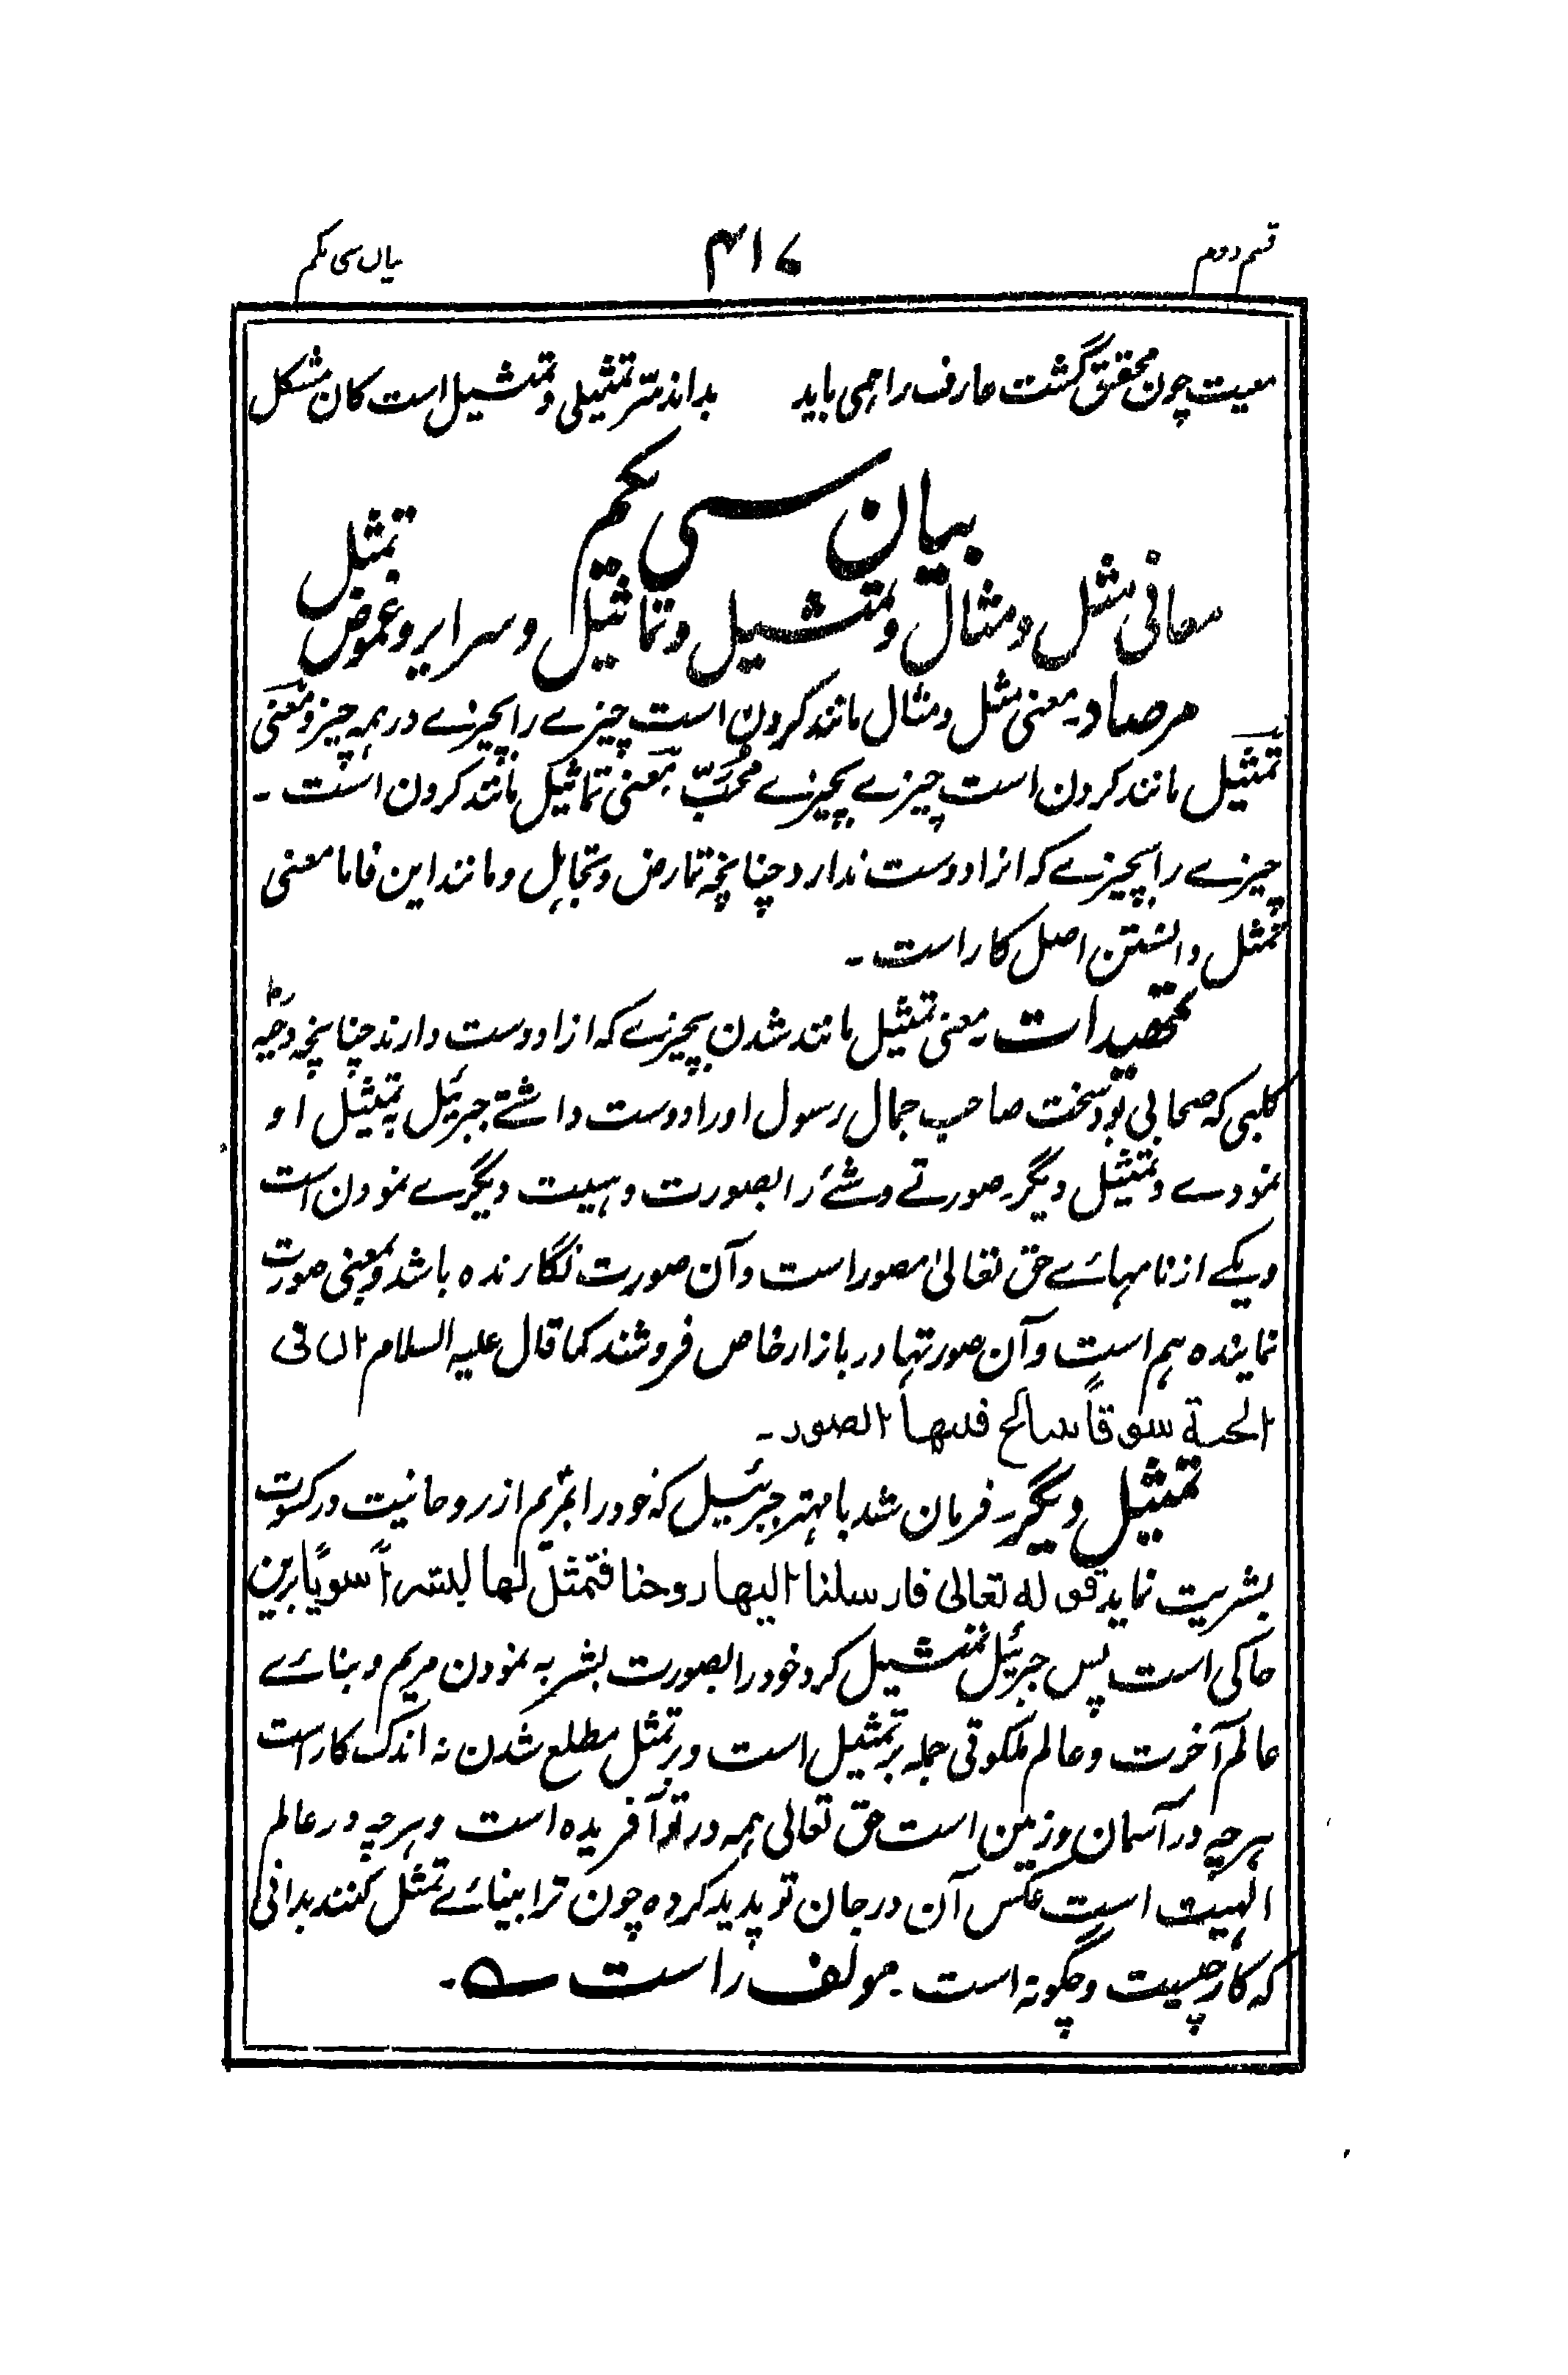 قسم دوم ۴۱۷ بیان سی یکم
معیت چون محقق گشت عارف را همی باید بداند سّر تمثیلی و تمثیل است کان مشکل
بیان سی یکم
معانی مثل و مثال و تمثیل و تماثیل و سرایر و غموض تمثل
مرصاد۔ معنی مثل و مثال مانند کردن است چیزے را بچیزے در همه چیز و معنی
تمثیل مانند کردن است چیزے بچیزے معنی تماثیل مانند کردن است ۔
چیزے را بچیزے که ازا دوست ندارد چنانچه تمارض و تجاهل و مانند این فاما معنی
تمثل دانستن اصل کار است ۔
تمهیدات ۔ معنی تمثیل مانند شدن بچیزے که ازا دوست دارند چنانچه دحیه
کلبی که صحابی بود سخت صاحب جمال رسول اورا دوست داشتے جبرئیل به تمثیل او
نمودے و تمثیل دیگر۔ صورتے و شئے را بصورت و هییت دیگرے نمودن است
و یکے از نامهائے حق تعالیٰ مصور است و آن صورت نگارنده باشد و بمعنی صورت
نماینده هم است و آن صورتها در بازار خاص فروشند کما قال علیه السلام ان فی
الجنة سوقاً یباع فیها الصور ۔
تمثیل دیگر۔ فرمان شد با مهتر جبرئیل که خود را بمریم از روحانیت در کسوت
بشریت نماید قوله تعالی فارسلنا الیها روحنا فتمثل لها بشراً سویّا برین
حاکی است پس جبرئیل تمثیل کرد خود را بصورت بشر به نمودن مریم و بنائے
عالم آخرت و عالم ملکوتی جمله بر تمثیل است و بر تمثل مطلع شدن نه اندک کار است
هر چه در آسمان و زمین است حق تعالی همه در تو آفریده است و هر چه در عالم
الهیت است عکس آن در جان تو پدید کرده چون ترا بینائے تمثل کنند بدانی
که کار چیست و چگونه است ۔ مولف راست ۔